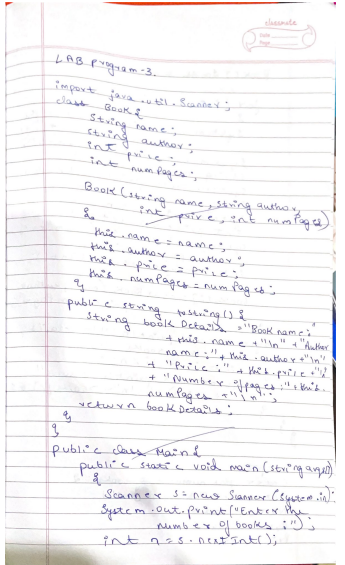 classmate
Date
Page
LAB program-3.
import java.util.Scanner;
class Book {
String name;
String author;
int price;
int numPages;
Book (String name, String author,
int price, int numPages)
{
this.name = name;
this.author = author;
this.price = price;
this.numPages = numPages;
}
public String toString() {
String bookDetails = "Book name:"
+ this.name + "\n" + "Author
name:" + this.author + "\n"
+ "Price:" + this.price + "\n"
+ "Number of pages:" + this.
numPages + "\n";
return bookDetails;
}
}
public class Main {
public static void main (String args[])
{
Scanner s = new Scanner (System.in);
System.out.print("Enter the
number of books:");
int n = s.nextInt();